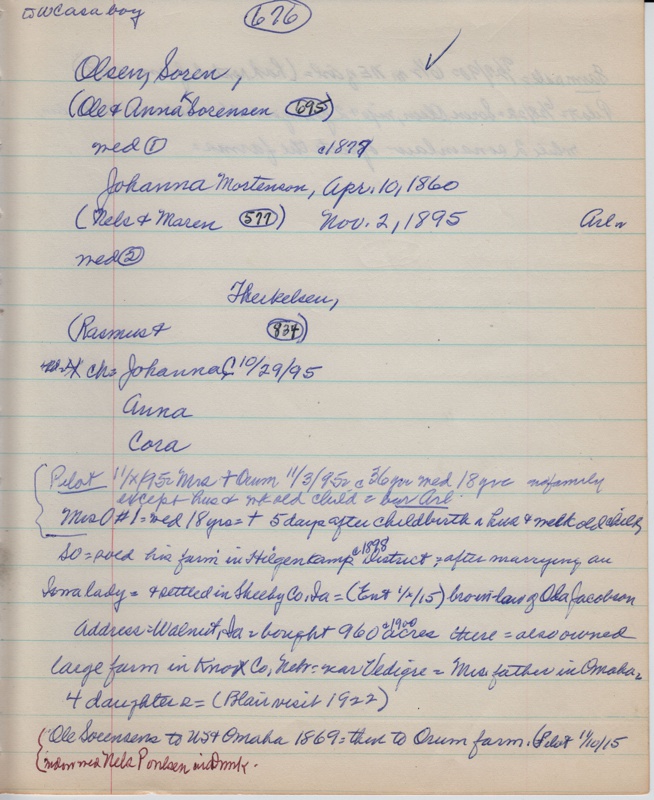 is w Casa boy
676
Olsen, Soren,
(Ole & Anna Sorensen 695)
med ① c1877
Johanna Mortenson, Apr. 10, 1860
(Nels & Maren 577) Nov. 2, 1895 Arl
med ②
Therkelsen,
(Rasmus & 834)
4 ch = Johanna C 10/29/95
Anna
Cora
Pilot 11/ /95 = Mrs + Orum 11/3/95 c 36 yrs med 18 yrs no family
except hus & wk old child = bur Arl.
Mrs O #1 = med 18 yrs = + 5 days after childbirth hus & week old child
SO = sold his farm in Hilgenkamp District c1898 = after marrying an
Iowa lady = & settled in Shelby Co, Ia = (Ent 1/2/15) bro-in-law of Ola Jacobson
Address = Walnut, Ia = bought 960 acres c1900 there = also owned
large farm in Knox Co, Nebr = near Verdigre = Mrs. father in Omaha =
4 daughters = (Blair visit 1922)
Ole Sorensens to US & Omaha 1869 = then to Orum farm. (Pilot 11/10/15
Nels Poulsen in Dnmk.